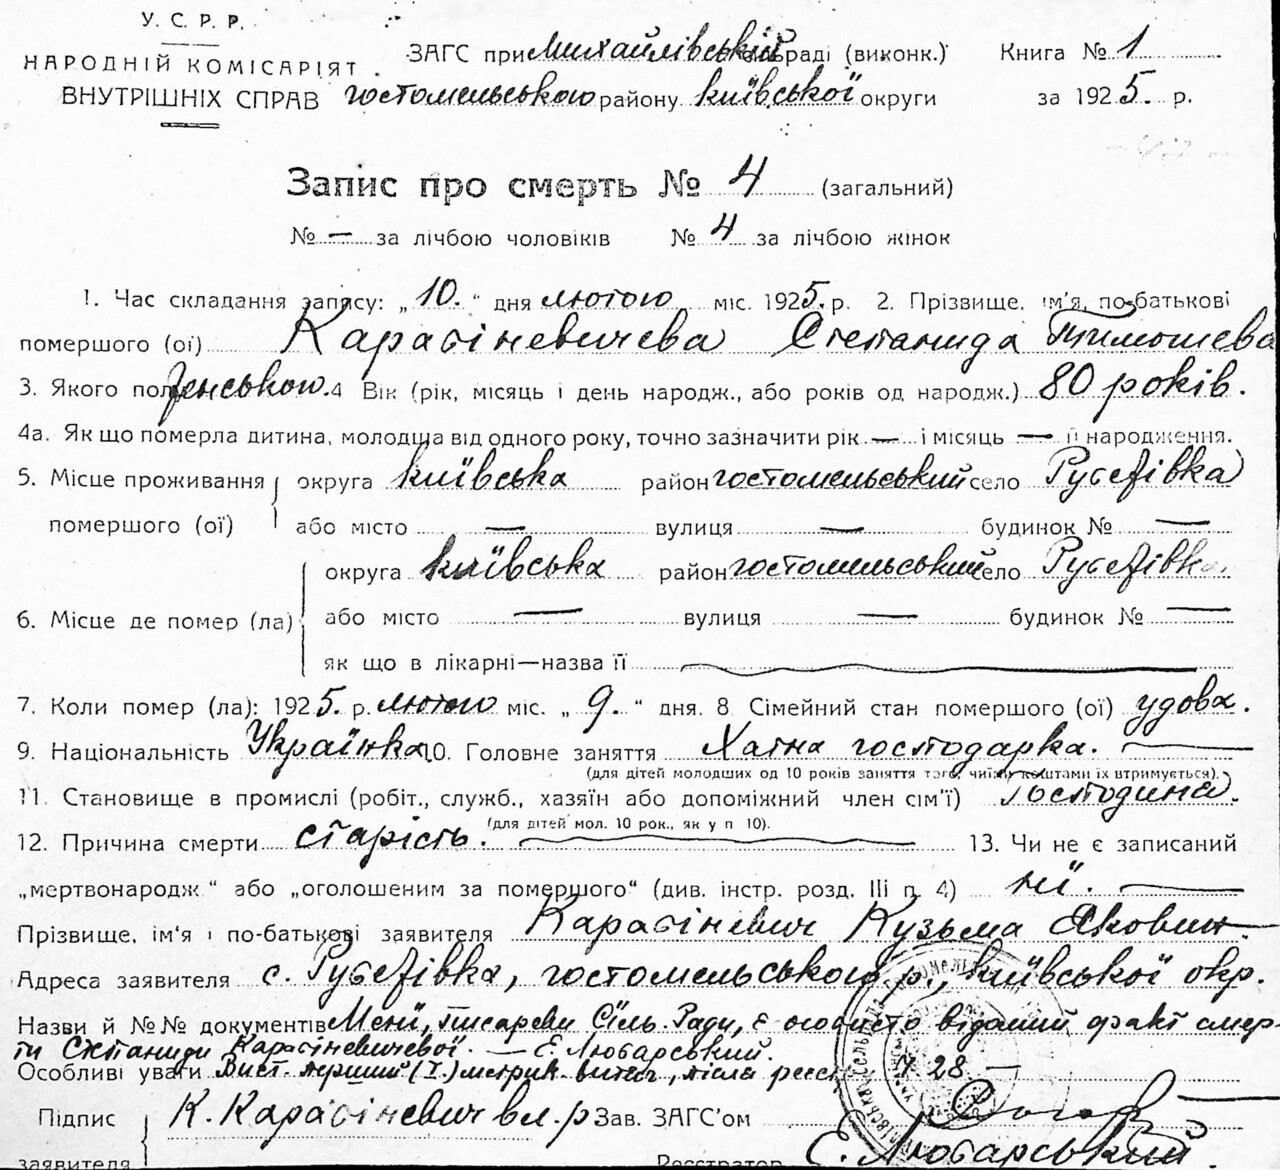 У. С. Р. Р.
НАРОДНІЙ КОМІСАРІЯТ
ВНУТРІШНІХ СПРАВ
ЗАГС при Михайлівській раді (виконк.)
Гостомельського району Київської округи
Книга № 1
за 1925. р.
Запис про смерть № 4 (загальний)
№ — за лічбою чоловіків № 4 за лічбою жінок
1. Час складання запису: „10.“ дня лютого міс. 1925. р. 2. Прізвище, ім'я, по-батькові
помершого (ої) Карабіневичева Степанида Тимошева
3. Якого пол женського. 4 Вік (рік, місяць і день народж., або років од народж.) 80 років.
4а. Як що померла дитина, молодша від одного року, точно зазначити рік — і місяць — її народження.
5. Місце проживання округа Київська район Гостомельський село Рубежівка
помершого (ої) або місто — вулиця — будинок № —
округа Київська район Гостомельський село Рубежівка
6. Місце де помер (ла) або місто — вулиця — будинок № —
як що в лікарні—назва її
7. Коли помер (ла): 1925. р. лютого міс. „9.“ дня. 8 Сімейний стан помершого (ої) удова.
9. Національність Українка 10. Головне заняття Хатня господарка. —
(для дітей молодших од 10 років заняття того, чиїми коштами їх втримується).
11. Становище в промислі (робіт., служб., хазяїн або допоміжний член сім'ї) Господиня.
(для дітей мол. 10 рок., як у п 10).
12. Причина смерти старість. 13. Чи не є записаний
„мертвонародж“ або „оголошеним за помершого“ (див. інстр. розд. III п. 4) ні. —
Прізвище, ім'я і по-батькові заявителя Карабіневич Кузьма Якович
Адреса заявителя с. Рубежівка, Гостомельського р., Київської окр.
Назви й №№ документів Мені, писареви Сіль. Ради, є особисто відомий факт смер-
ти Степаниди Карабіневичевої. — Є. Любарський.
Особливі уваги Вист. перший (I.) метрич. витяг, після реєст 28 —
Підпис К. Карабіневич вл. р Зав. ЗАГС'ом
заявителя Реєстратор Є. Любарський.